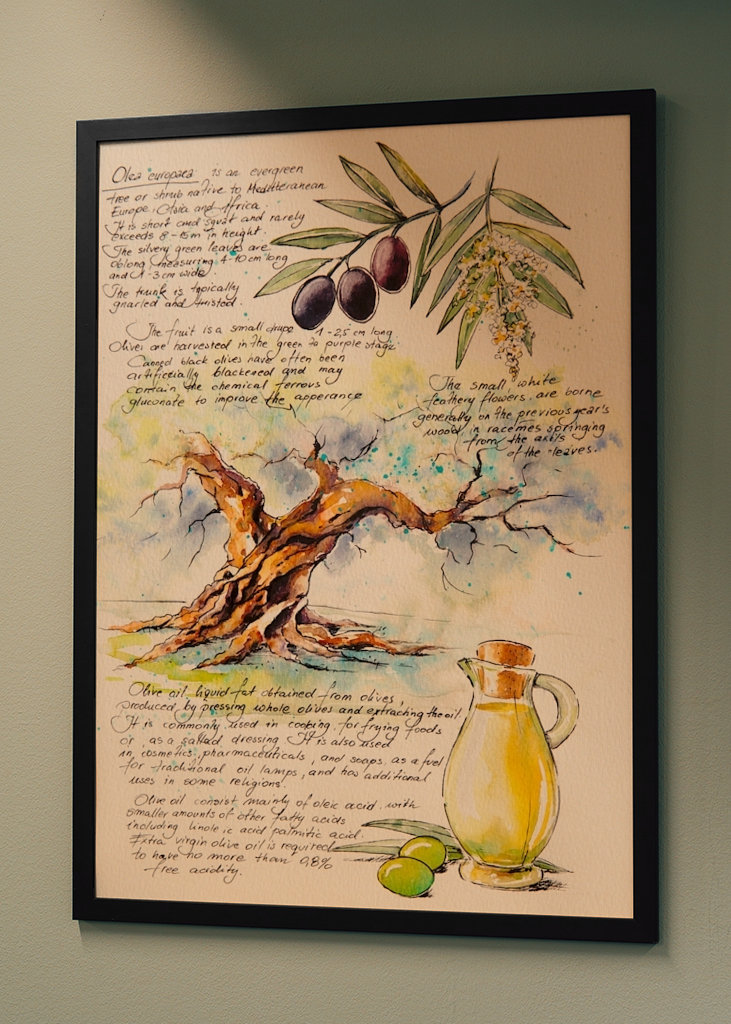 Olea europaea is an evergreen
tree or shrub native to Mediterranean
Europe, Asia and Africa.
It is short and squat and rarely
exceeds 8-15 m in height.
The silvery green leaves are
oblong measuring 4-10 cm long
and 1-3 cm wide
The trunk is typically
gnarled and twisted.
The fruit is a small drupe 1-2,5 cm long
Olives are harvested in the green to purple stage.
Canned black olives have often been
artificially blackened and may
contain the chemical ferrous
gluconate to improve the apperance
The small white
feathery flowers, are borne
generally on the previous year's
wood, in racemes springing
from the axils
of the leaves.
Olive oil liquid fat obtained from olives,
produced by pressing whole olives and extracting the oil.
It is commonly used in cooking, for frying foods
or as a sallad dressing It is also used
in cosmetics, pharmaceuticals, and soaps, as a fuel
for traditional oil lamps, and has additional
uses in some religions.
Olive oil consist mainly of oleic acid, with
smaller amounts of other fatty acids
including linole ic acid palmitic acid.
Extra virgin olive oil is required
to have no more than 0,8%
free acidity.